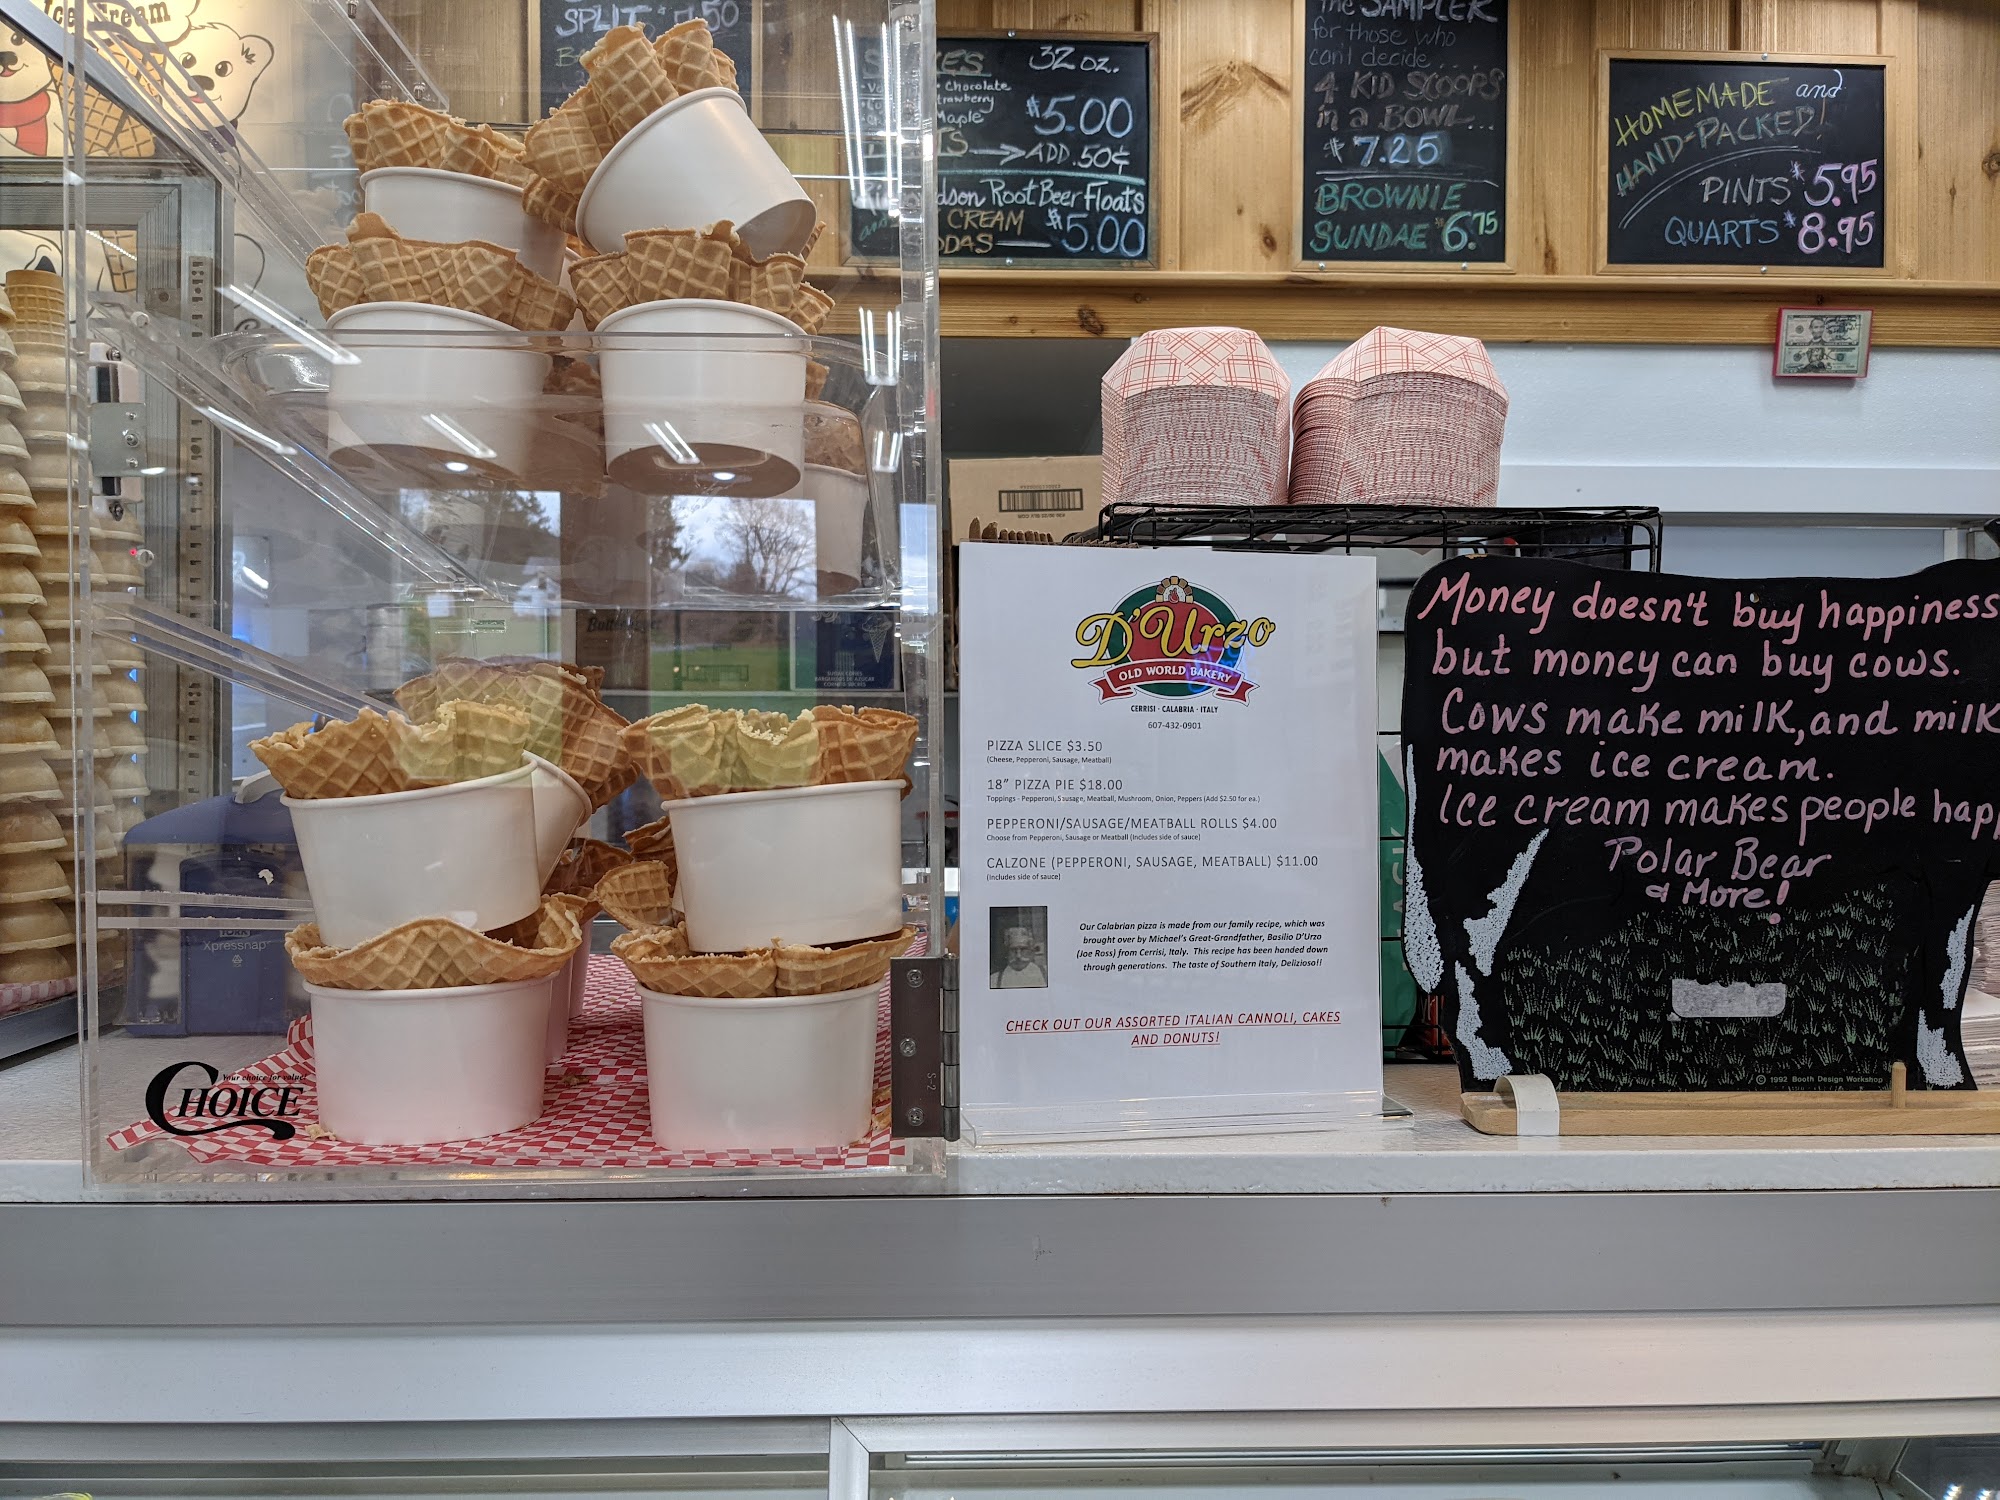 Ice Cream
SPLIT
.50
KES 32 oz.
• Chocolate
trawberry
Maple
$5.00
TS → ADD .50¢
dson Root Beer Floats
CREAM
DAS — $5.00
the SAMPLER
for those who
can't decide ....
4 KID SCOOPS
in a BOWL...
$7.25
BROWNIE
SUNDAE $6.75
HOMEMADE and
HAND-PACKED!
PINTS $5.95
QUARTS $8.95
D'Urzo
OLD WORLD BAKERY
CERRISI · CALABRIA · ITALY
607-432-0901
PIZZA SLICE $3.50
(Cheese, Pepperoni, Sausage, Meatball)
18" PIZZA PIE $18.00
Toppings - Pepperoni, Sausage, Meatball, Mushroom, Onion, Peppers (Add $2.50 for ea.)
PEPPERONI/SAUSAGE/MEATBALL ROLLS $4.00
Choose from Pepperoni, Sausage or Meatball (Includes side of sauce)
CALZONE (PEPPERONI, SAUSAGE, MEATBALL) $11.00
(Includes side of sauce)
Our Calabrian pizza is made from our family recipe, which was
brought over by Michael's Great-Grandfather, Basilio D'Urzo
(Joe Ross) from Cerrisi, Italy. This recipe has been handed down
through generations. The taste of Southern Italy, Delizioso!!
CHECK OUT OUR ASSORTED ITALIAN CANNOLI, CAKES
AND DONUTS!
Money doesn't buy happiness
but money can buy cows.
Cows make milk, and milk
makes ice cream.
Ice cream makes people happ
Polar Bear
& More!
© 1992 Booth Design Workshop
YORK
Xpressnap
Your choice for value!
CHOICE
S-2